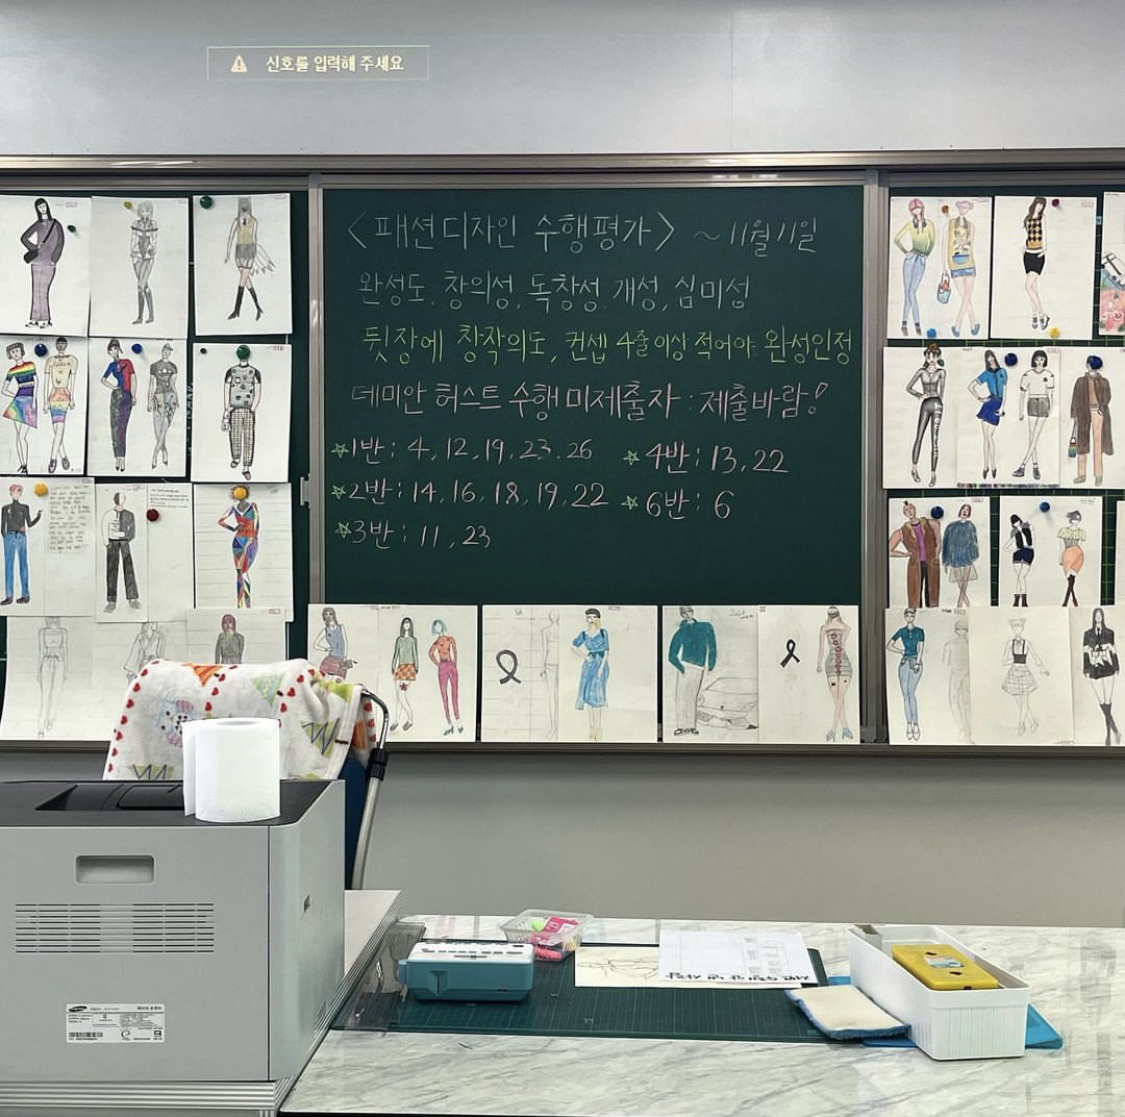 신호를 입력해 주세요
<패션디자인 수행평가> ~11월11일
완성도. 창의성. 독창성. 개성, 심미성
뒷장에 창작의도, 컨셉 4줄이상 적어야 완성인정
데미안 허스트 수행 미제출자 : 제출바람!
☆1반 : 4, 12, 19, 23. 26
☆4반 : 13, 22
☆2반 : 14, 16, 18, 19, 22
☆6반 : 6
☆3반 : 11, 23
SAMSUNG